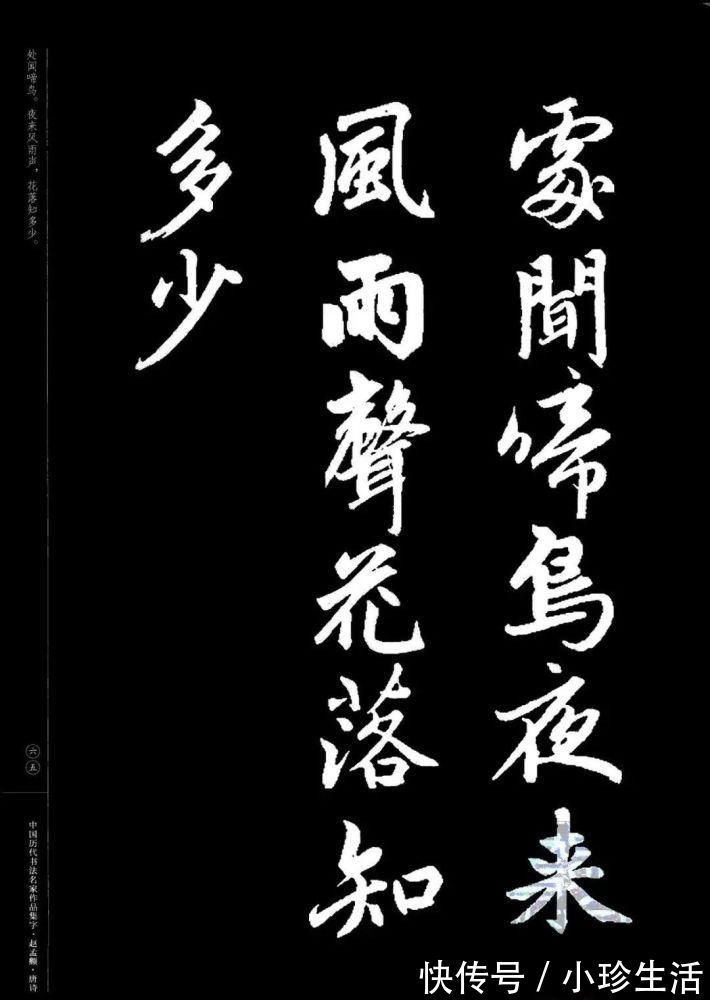 處聞啼鳥夜来
風雨聲花落知
多少
处闻啼鸟。夜来风雨声，花落知多少。
六五
中国历代书法名家作品集字·赵孟頫·唐诗
快传号 / 小珍生活